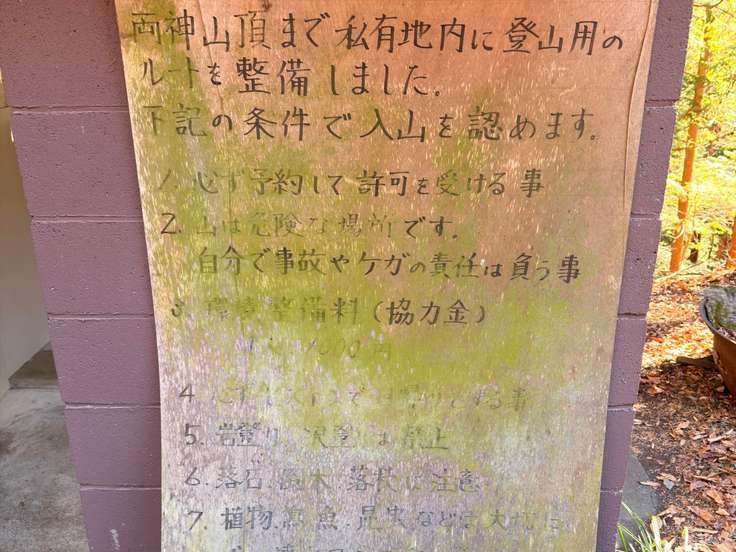 両神山頂まで私有地内に登山用の
ルートを整備しました。
下記の条件で入山を認めます。
1. 必ず予約して許可を受ける事
2. 山は危険な場所です。
自分で事故やケガの責任は負う事
3 環境整備料(協力金)
4
5. 岩登り、沢登りは禁止
6. 落石、倒木、落枝に注意
7. 植物、鳥、魚、昆虫などは大切に